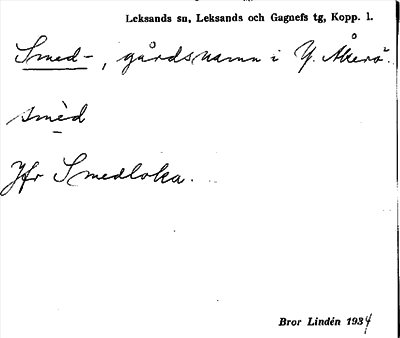 Leksands sn, Leksands och Gagnefs tg, Kopp. l.
Smed-, gårdsnamn i Y. Åkerö.
smèd
Jfr Smedloka.
Bror Lindén 1934